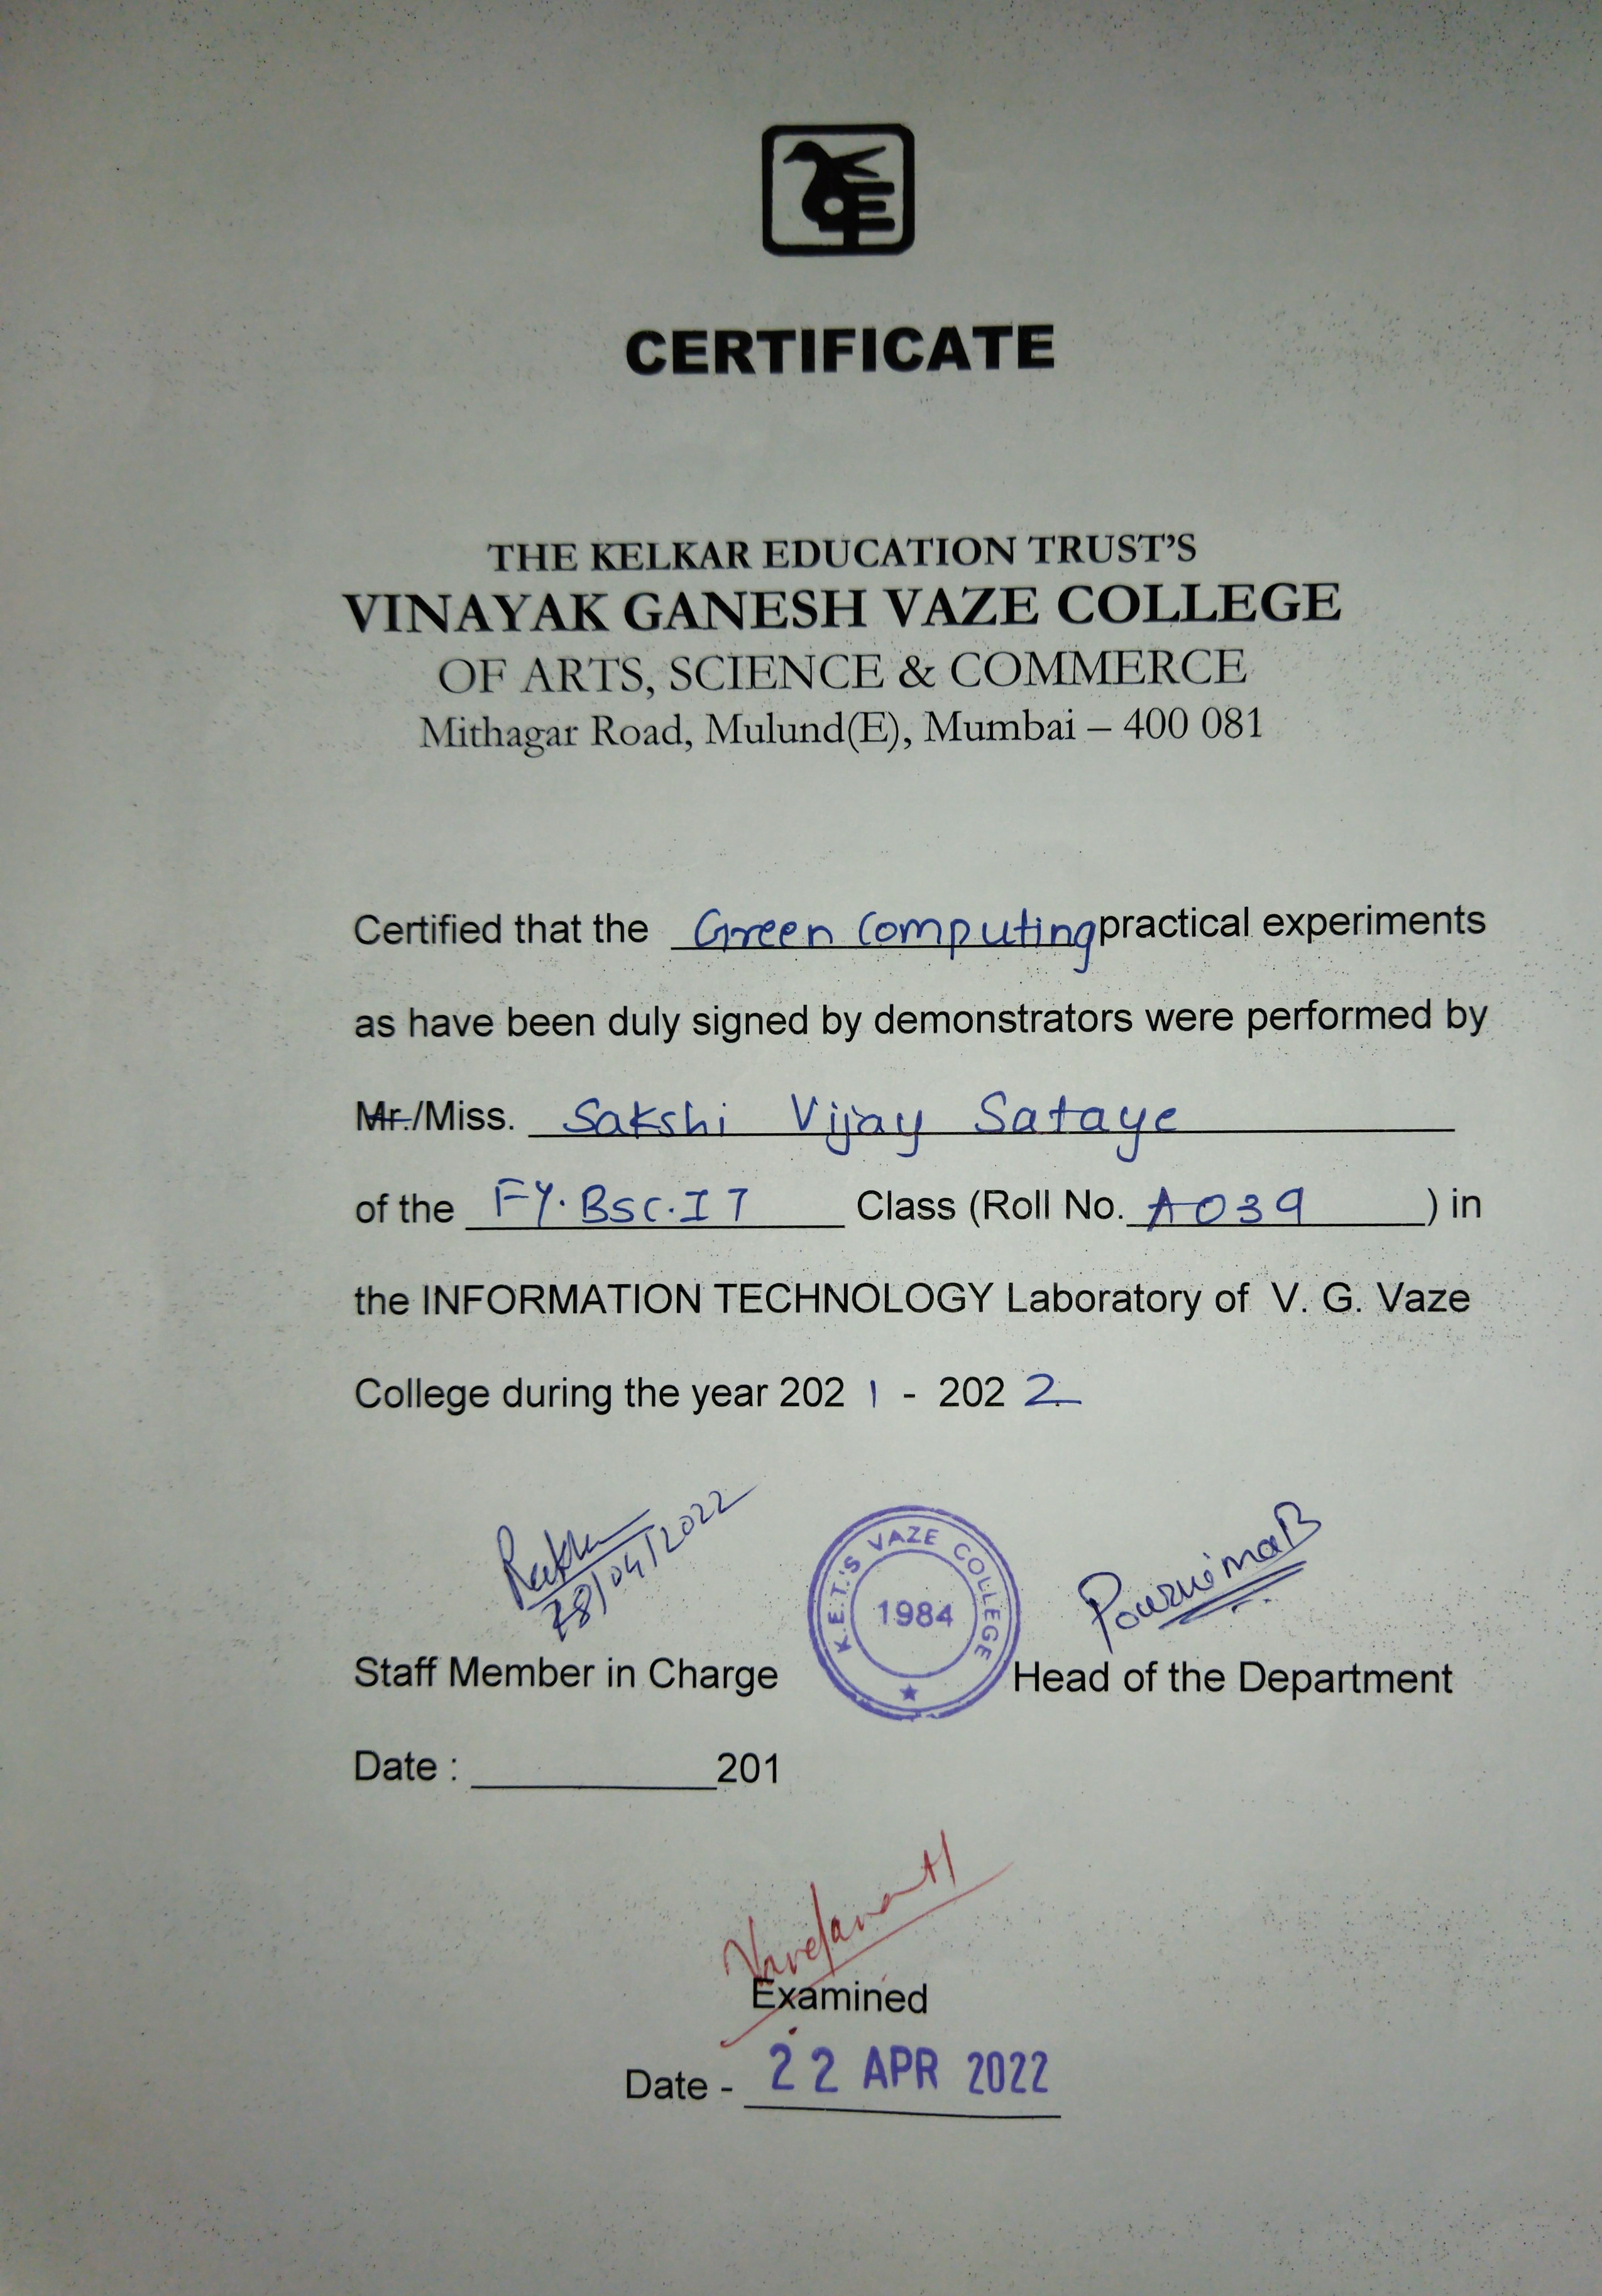 CERTIFICATE
THE KELKAR EDUCATION TRUST'S
VINAYAK GANESH VAZE COLLEGE
OF ARTS, SCIENCE & COMMERCE
Mithagar Road, Mulund(E), Mumbai – 400 081
Certified that the Green Computing practical experiments
as have been duly signed by demonstrators were performed by
Mr./Miss. Sakshi Vijay Sataye
of the FY.BSC.IT Class (Roll No. A039 ) in
the INFORMATION TECHNOLOGY Laboratory of V. G. Vaze
College during the year 2021 - 2022
28/04/2022
K.E.T.'S VAZE COLLEGE
1984
PournimaB
Staff Member in Charge
Head of the Department
Date : 201
Examined
Date - 22 APR 2022